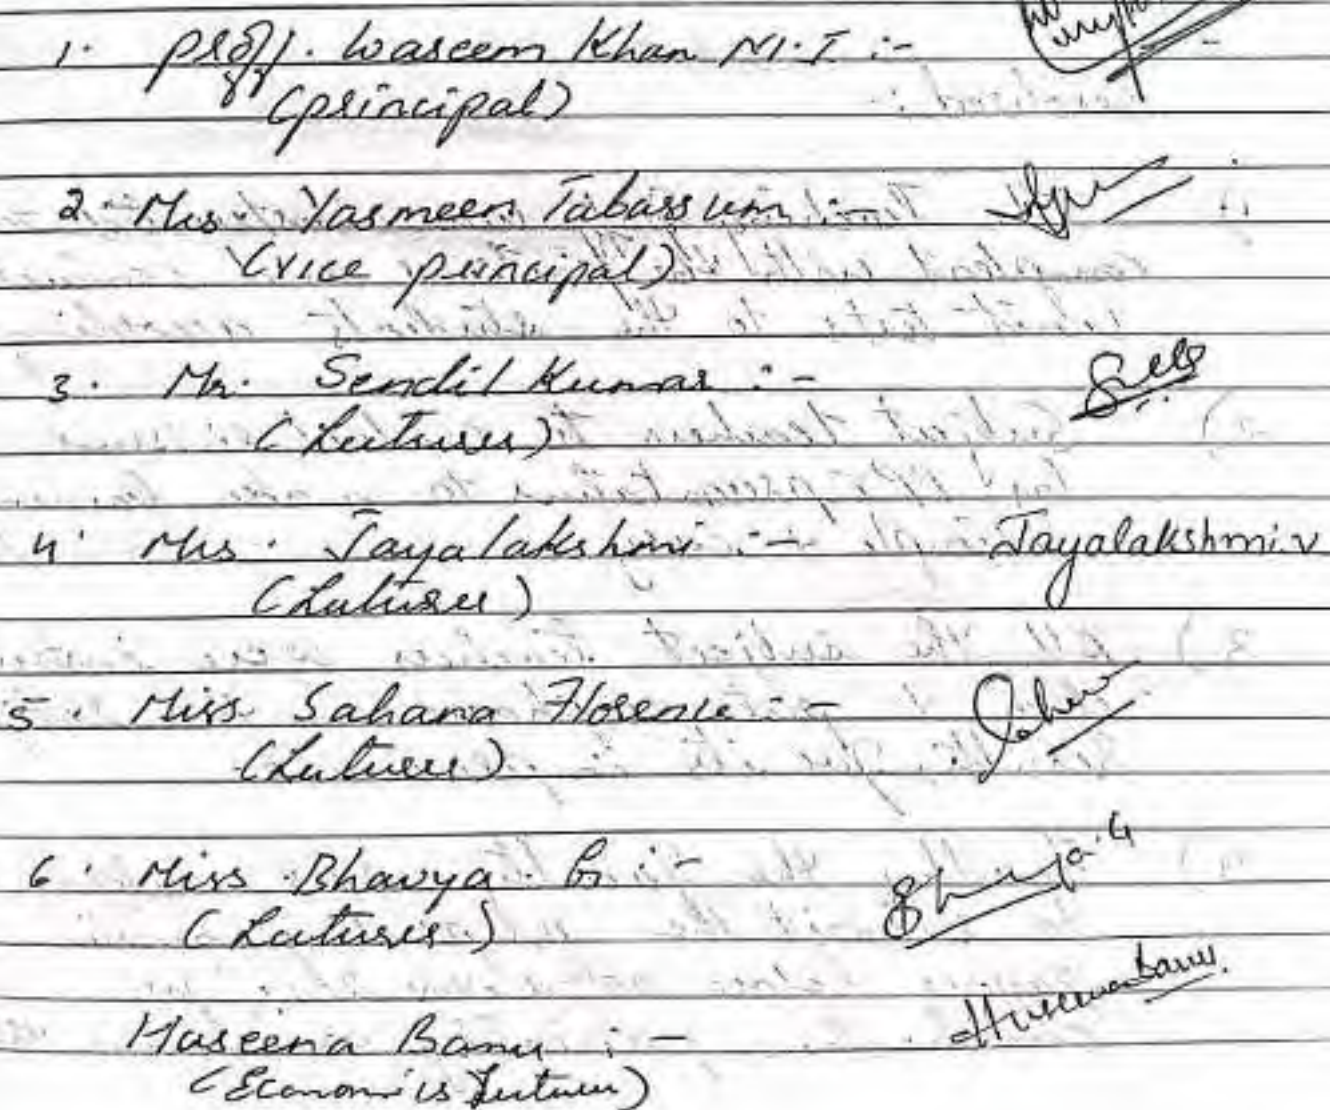 1. Proff. Waseem Khan M.I :-
(principal)
2. Mrs Yasmeen Tabassum :-
(vice principal)
3. Mr. Sendil Kumar :-
(Lecturer)
4. Mrs. Jayalakshmi :- Jayalakshmi.v
(Lecturer)
5. Miss Sahana Florence :-
(Lecturer)
6. Miss Bhavya. G :- Bhavya.G
(Lecturer)
Haseena Banu :- Haseena Banu.
(Economics Lecturer)